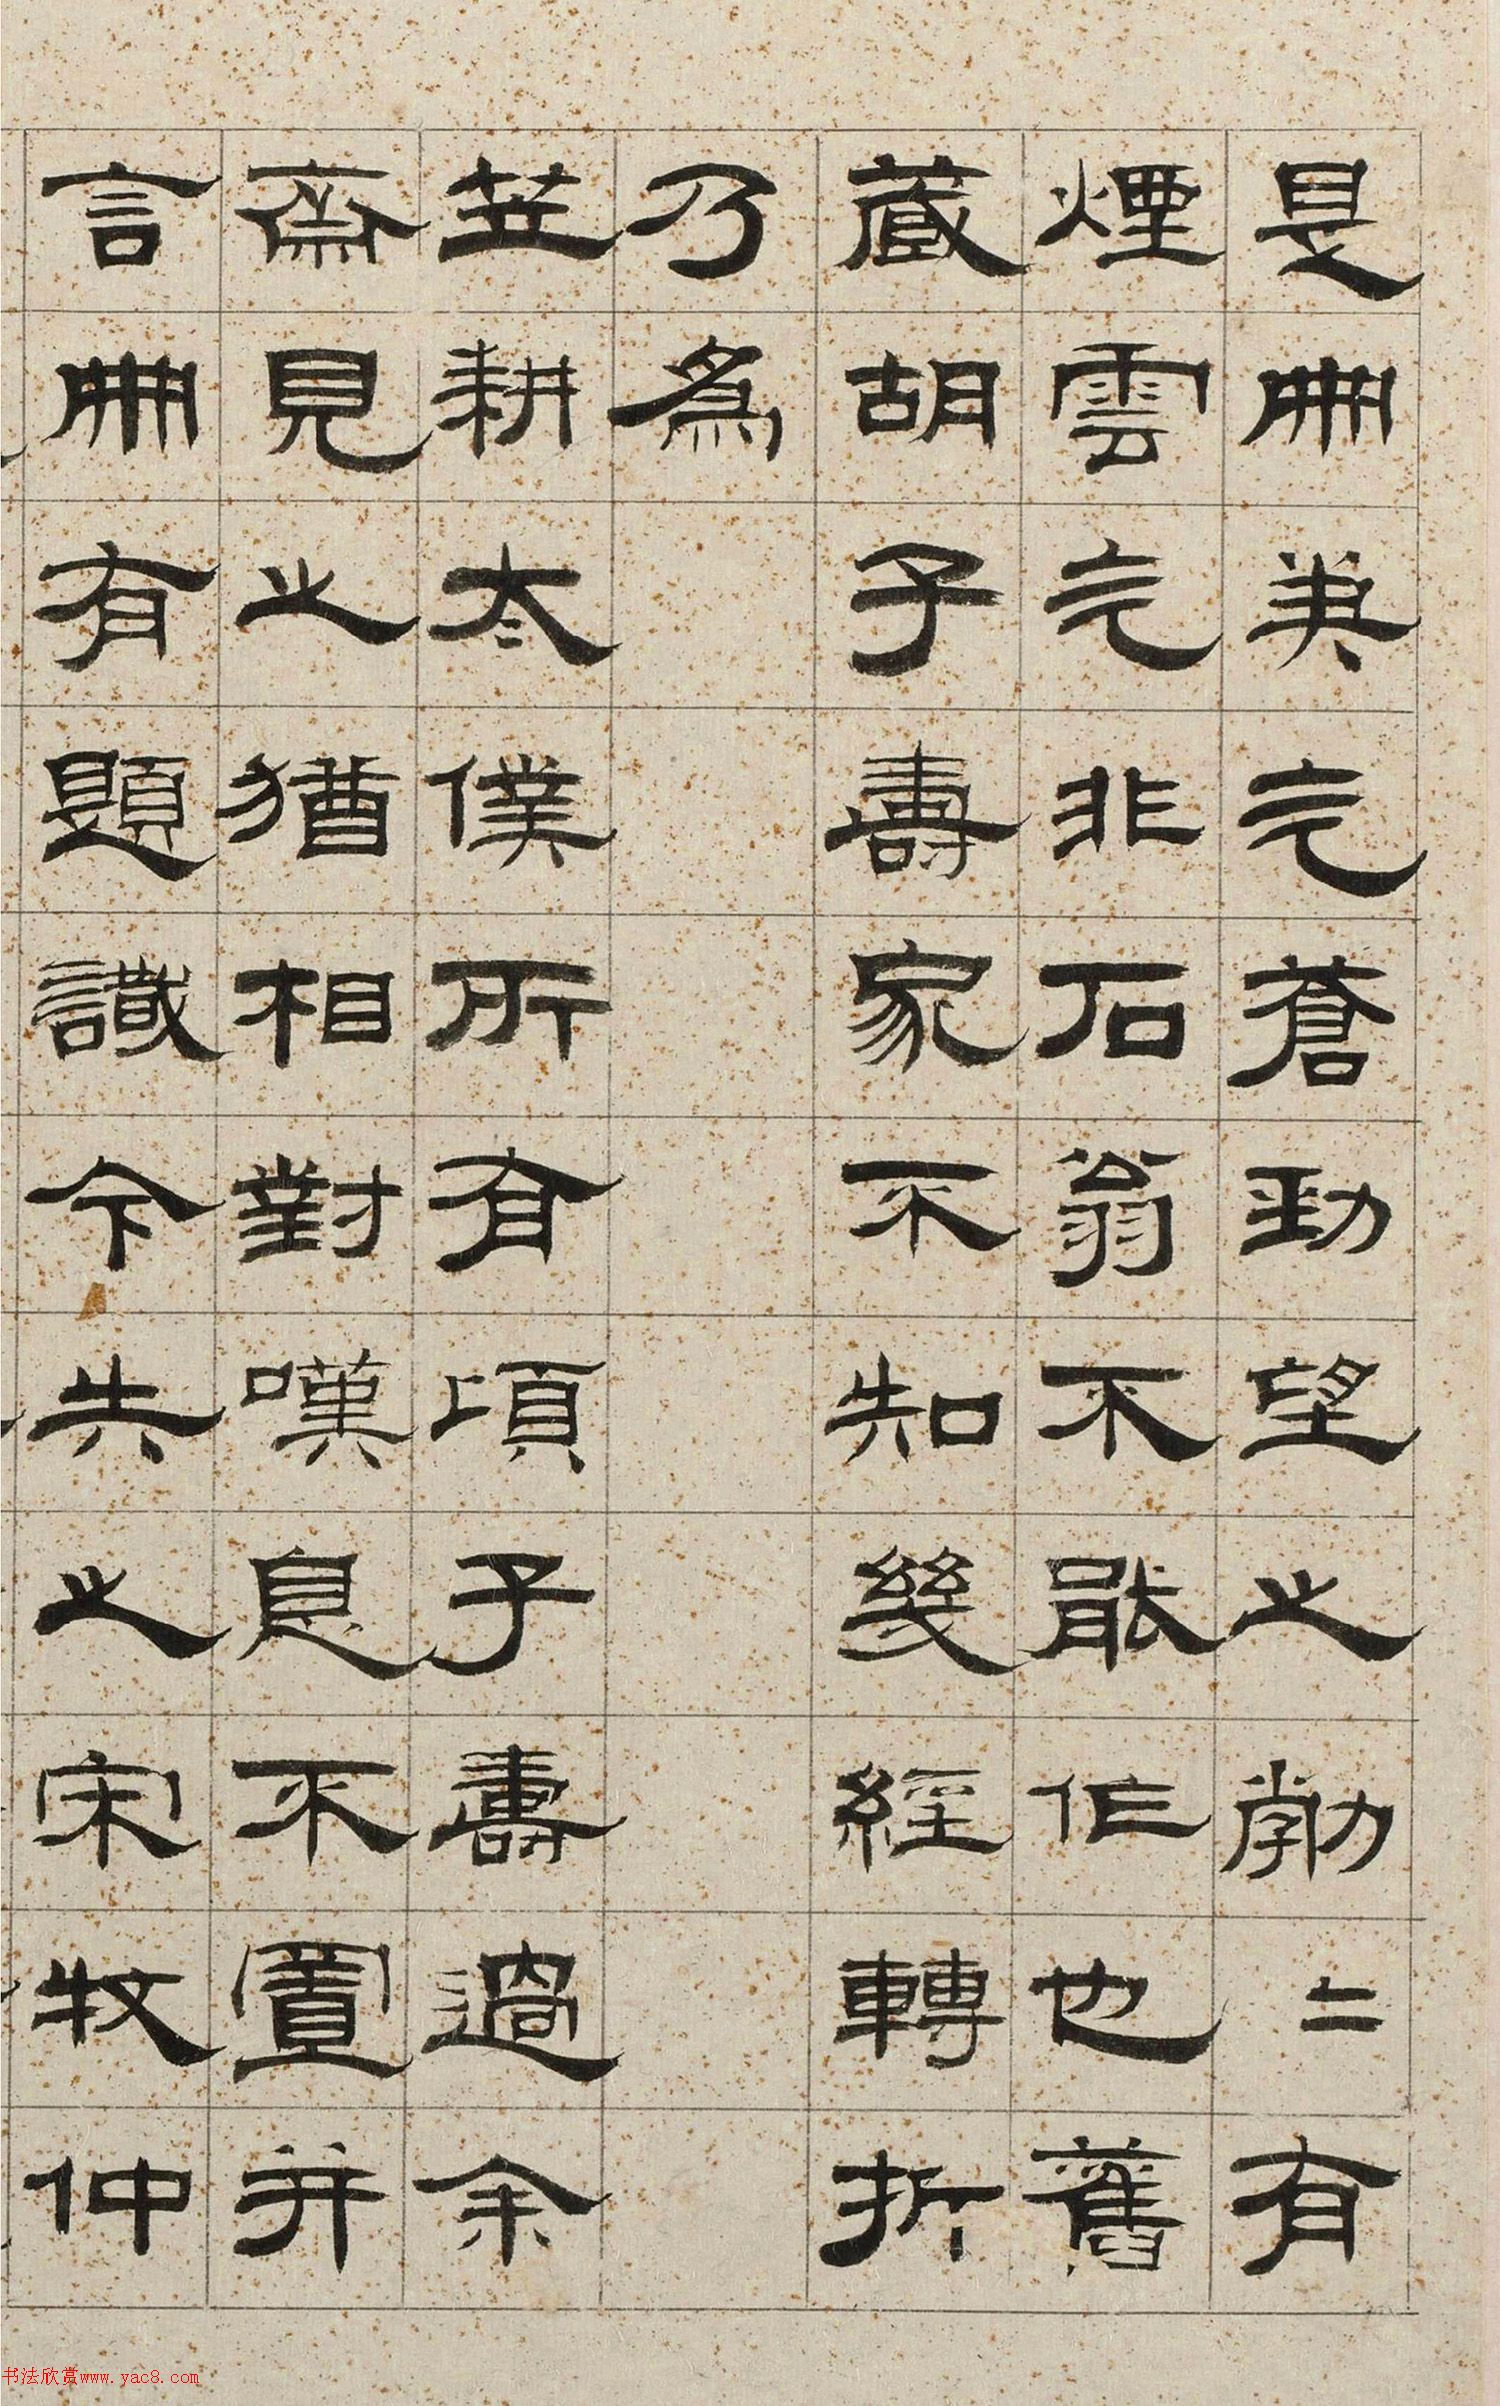 是冊兼元蒼勁望之勃二有
煙雲元非石翁不能作也舊
藏胡子壽家不知幾經轉折
乃為
笠耕太僕所有頃子壽過余
齋見之猶相對嘆息不置并
言冊有題識今失之宋牧仲
书法欣赏www.yac8.com